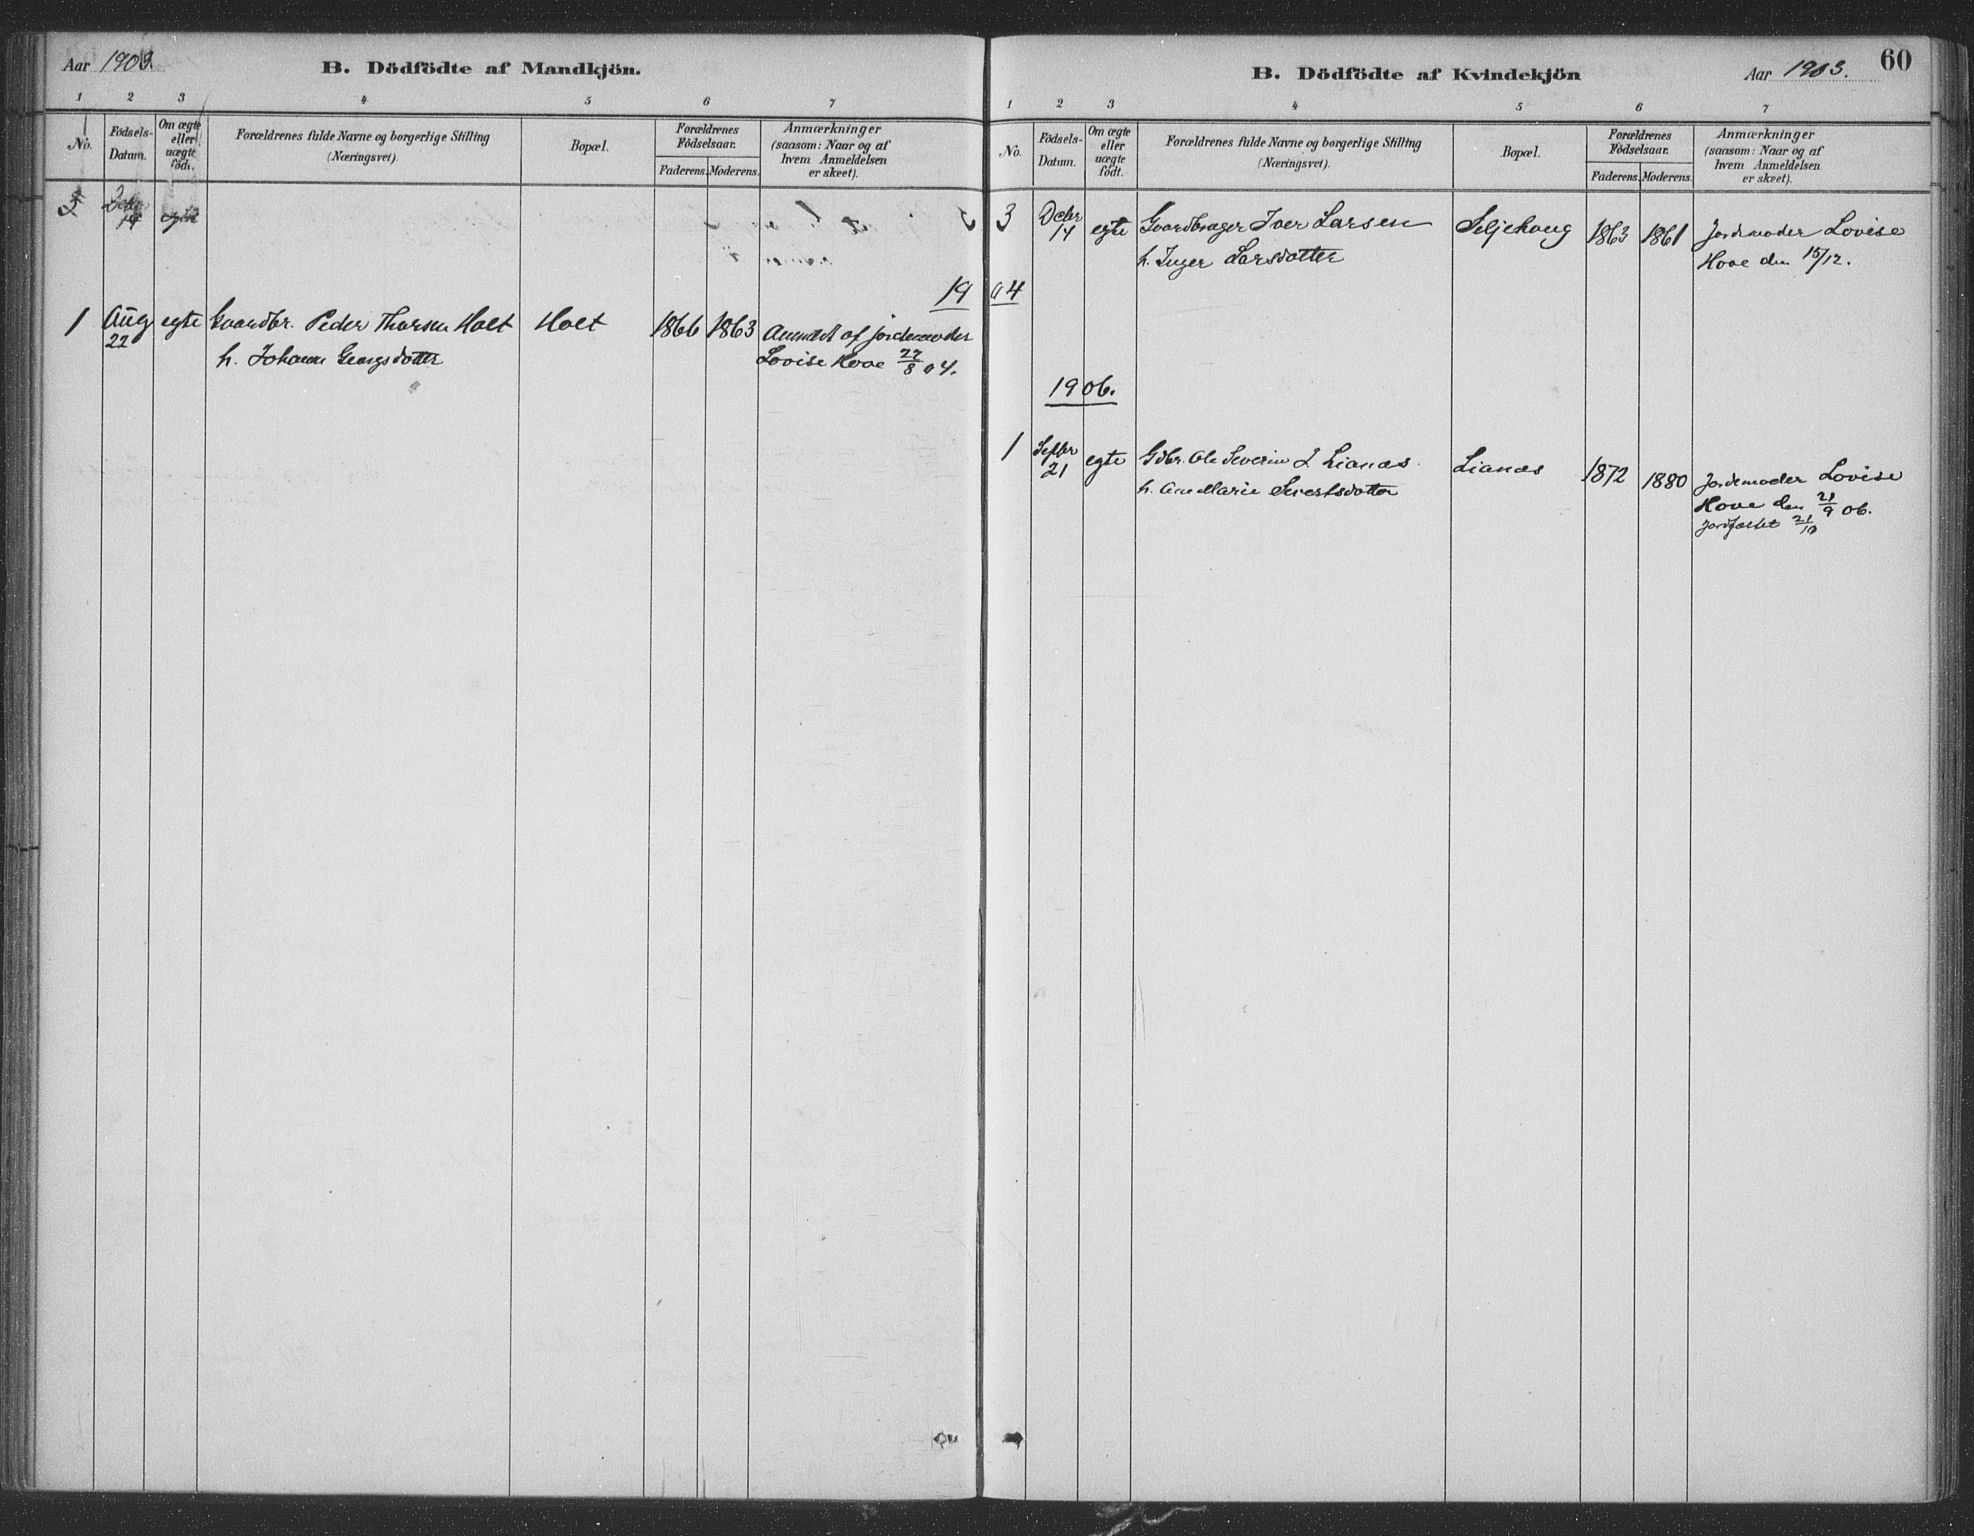 Aar 1903.
B. Dödfödte af Mandkjön.
1 2 3 4 5 6 7
No.
Födsels-
Datum.
Om ægte
eller
uægte
födt.
Forældrenes fulde Navne og borgerlige Stilling
(Næringsvei).
Bopæl.
Forældrenes
Födselsaar.
Faderens. Moderens.
Anmærkninger
(saasom: Naar og af
hvem Anmeldelsen
er skeet).
3 Dcbr egte
14
19
1 Aug egte Gaardbr. Peder Thorsen Holt Holt 1866 1863 Anmeldt af jordemoder
22 h. Johanne Georgsdatter Lovise Hove 22/8 04.
60
B. Dödfödte af Kvindekjön
Aar 1903.
1 2 3 4 5 6 7
No.
Födsels-
Datum.
Om ægte
eller
uægte
födt.
Forældrenes fulde Navne og borgerlige Stilling
(Næringsvei).
Bopæl.
Forældrenes
Födselsaar.
Faderens. Moderens.
Anmærkninger
(saasom: Naar og af
hvem Anmeldelsen
er skeet).
3 Dcbr egte Gaardbruger Iver Larsen Seljehaug 1863 1861 Jordemoder Lovise
14 h. Inger Larsdatter Hove den 15/12.
04
1906.
1 Septbr egte Gdbr. Ole Severin L Lianes. Lianes 1872 1880 Jordemoder Lovise
21 h. Ane Marie Sivertsdatter Hove den 21/9 06.
Jordfæstet 21/10